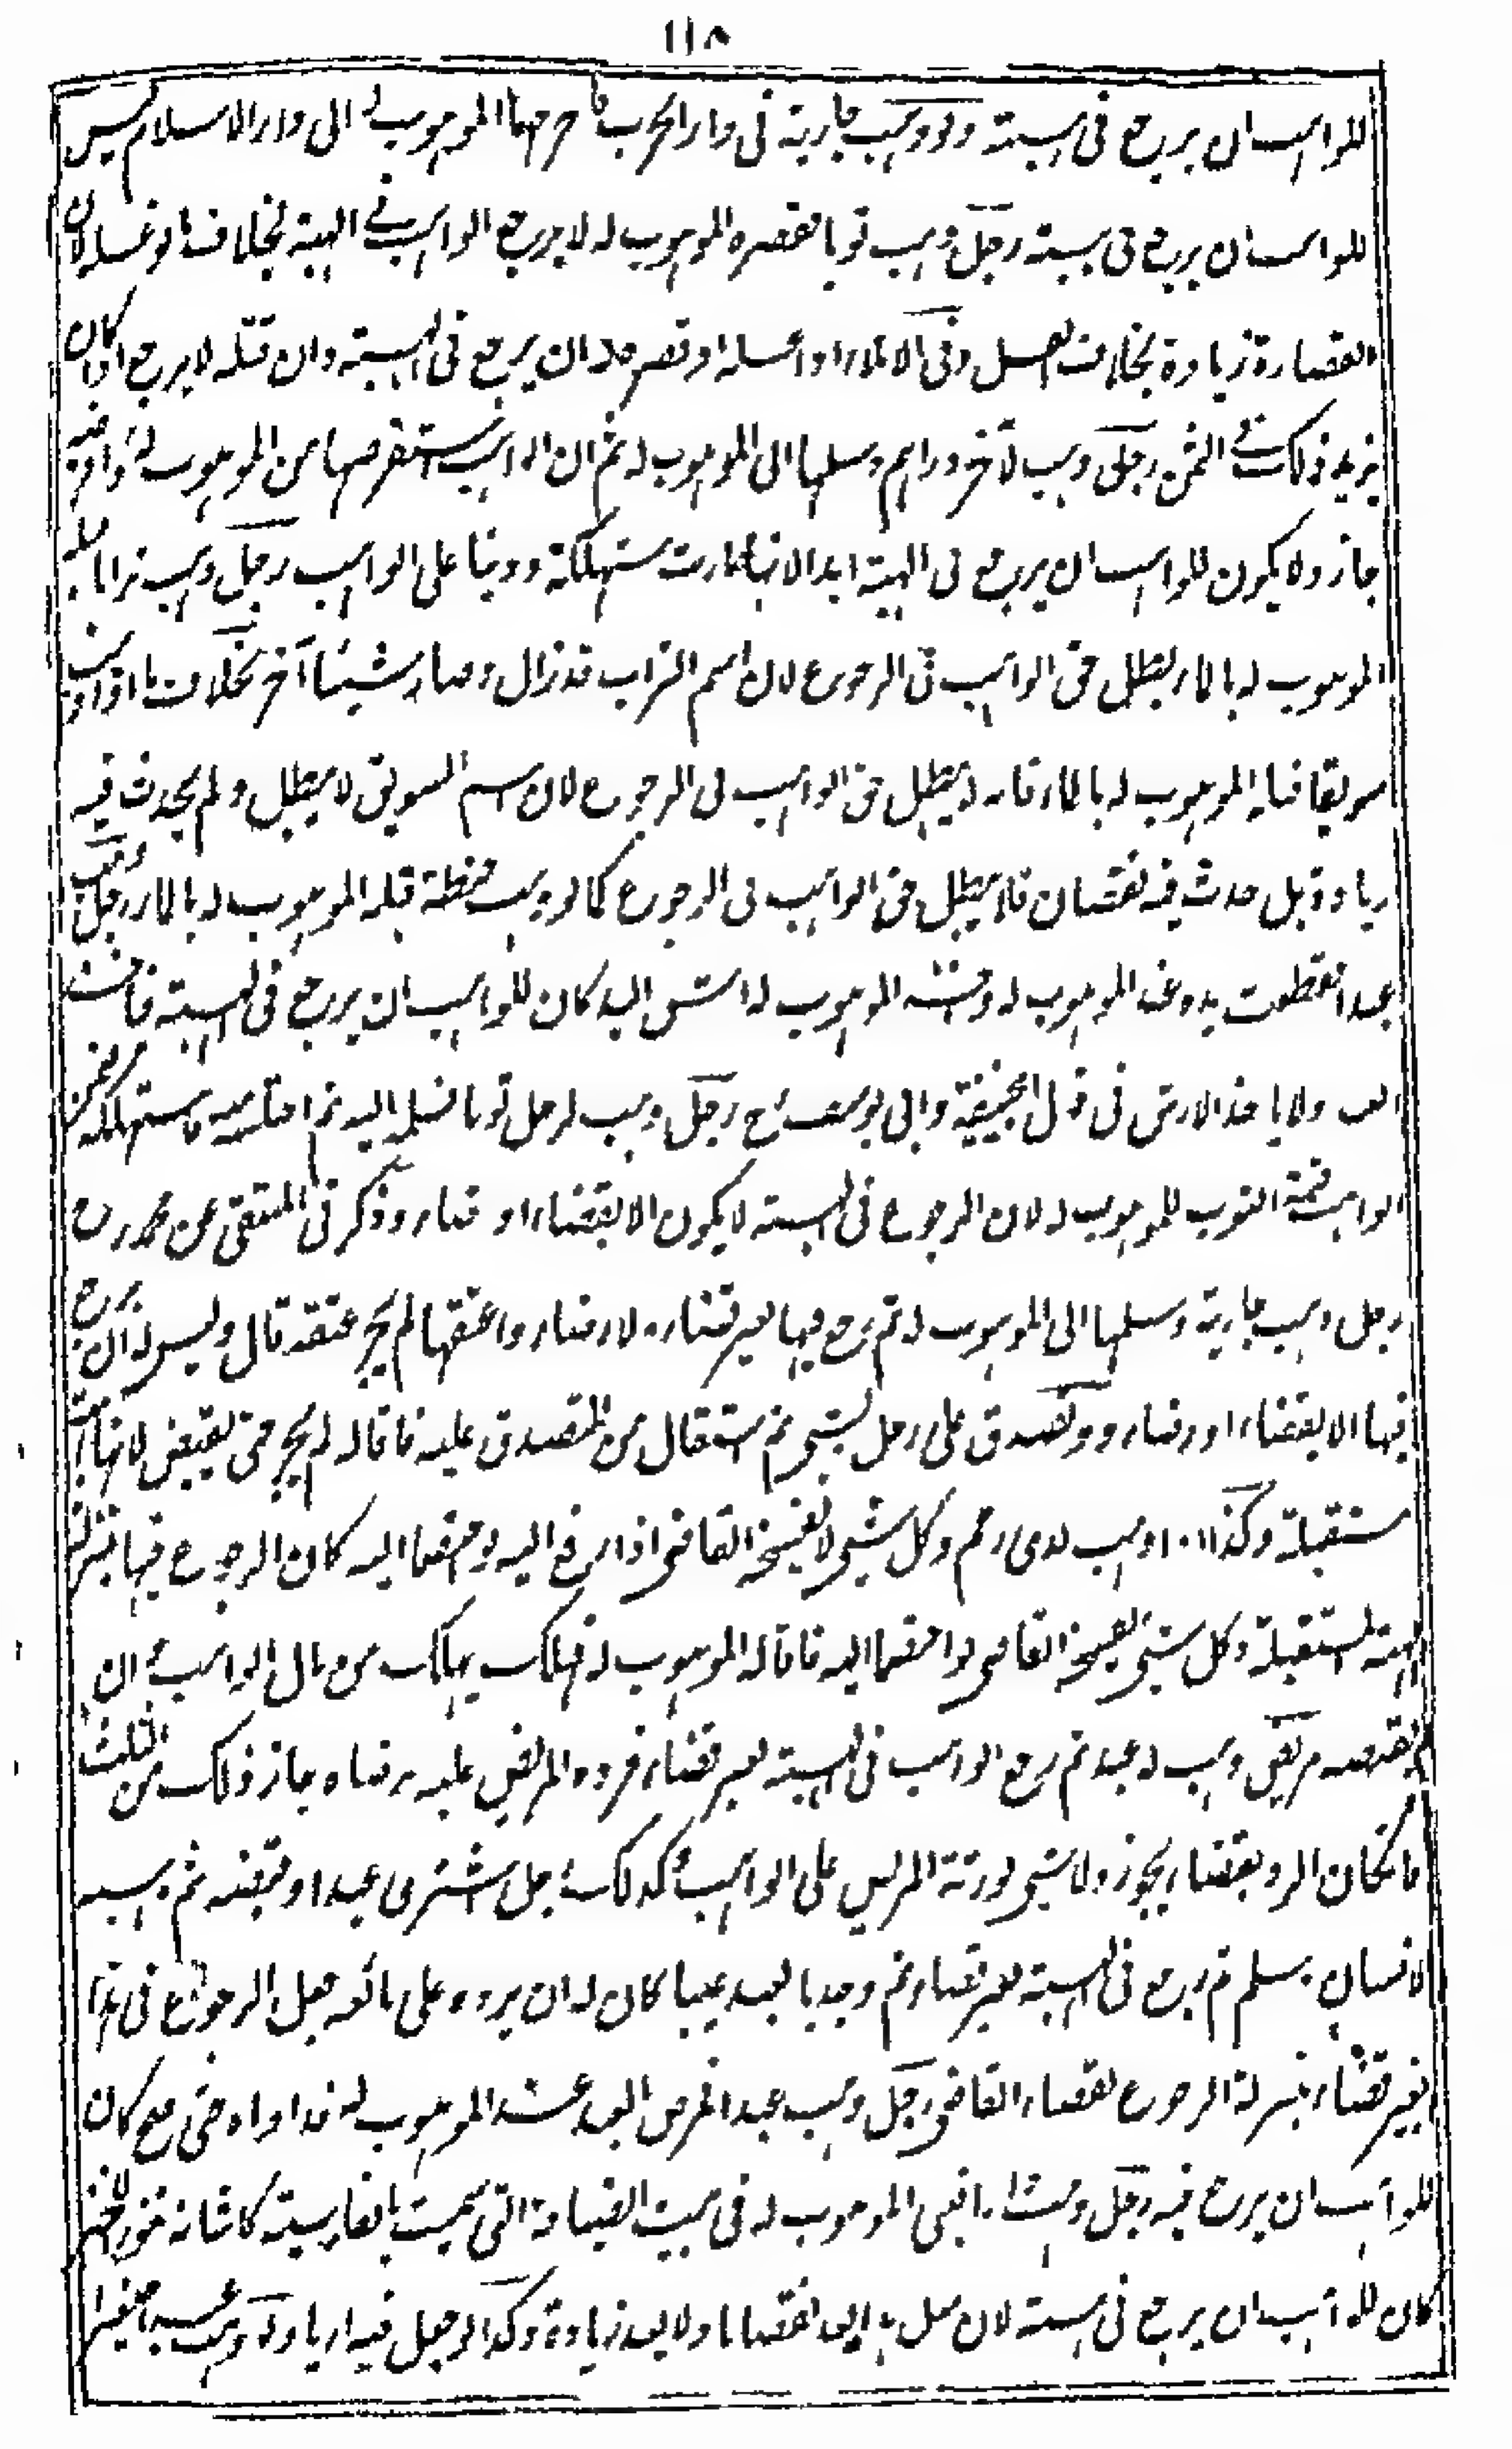 ١١٨
للواهب ان يرجع فى الهبة ولو وهب جارية فى دار الحرب فاخرجها الموهوب له الى دار الاسلام ليس
للواهب ان يرجع فى هبته رجل وهب ثوبا فقصره الموهوب له لا يرجع الواهب فى الهبة بخلاف ما لو غسله لان
القصارة زيادة بخلاف الغسل وفى الاملاء اذا غسله او قصره له ان يرجع فى الهبة وان فتله لا يرجع اذا كان
يزيد ذلك فى الثمن رجل وهب لآخر دراهم وسلمها الى الموهوب له ثم ان الواهب استقرضها من الموهوب له واقرضه
جاز ولا يكون للواهب ان يرجع فى الهبة ابدا لانها صارت مستهلكة ودينا على الواهب رجل وهب ترابا فبله
الموهوب له بالماء يبطل حق الواهب فى الرجوع لان اسم التراب قد زال وصار شيئا آخر بخلاف ما اذا وهب
سويقا فبله الموهوب له بالماء فانه لا يبطل حق الواهب فى الرجوع لان اسم السويق لا يبطل ولم يحدث فيه
زيادة بل حدث فيه نقصان فلا يبطل حق الواهب فى الرجوع كما لو وهب حنطة فبلها الموهوب له بالماء رجل وهب
عبدا فقطعت يده عند الموهوب له واخذ الموهوب له ارش اليد كان للواهب ان يرجع فى الهبة فياخذ
العبد ولا ياخذ الارش فى قول ابي حنيفة وابى يوسف رح رجل وهب لرجل ثوبا فسلم اليه ثم اختلسه فاستهلكه ضمن
الواهب قيمة الثوب للموهوب له لان الرجوع فى الهبة لا يكون الا بقضاء او رضاء وذكر فى المنتقى عن محمد رح
رجل وهب جارية وسلمها الى الموهوب له ثم رجع فيها بغير قضاء ولا رضاء واعتقها لم يجز عتقه قال وليس له ان يرجع
فيها الا بقضاء او رضاء ولو تصدق على رجل بشئ ثم استقال من المتصدق عليه فاقاله لم يجز حتى يقبض لانها هبة
مستقبلة وكذا اذا وهب لذى رحم وكل شئ لا يفسخه القاضى اذا رفع اليه واختصما اليه كان الرجوع فيها بمنزلة
الهبة المستقبلة وكل شئ يفسخه القاضى اذا اختصما اليه فاقاله الموهوب له فهلك يهلك من مال الواهب وان
لم يقبضه مريض وهب له عبد ثم رجع الواهب فى الهبة بغير قضاء فرده المريض عليه برضاه جاز ذلك من الثلث
فان كان الرد بقضاء يجوز ولا شئ لورثة المريض على الواهب كذلك رجل اشترى عبدا وقبضه ثم وهبه
لانسان وسلم ثم رجع فى الهبة بغير قضاء ثم وجد بالعبد عيبا كان له ان يرده على بائعه جعل الرجوع فى هذا
بغير قضاء بمنزلة الرجوع بقضاء القاضى رجل وهب عبدا فمرض العبد عند الموهوب له فداواه حتى صح كان
للواهب ان يرجع فيه رجل وهب دارا فبنى الموهوب له فى بيت الضيافة التى سميت بالفارسية كاشانه تنور للخبز
كان للواهب ان يرجع فى هبته لان مثل هذا يعد نقصانا ولا يعد زيادة وكذا لو جعل فيه اريا ولو وهب عبدا صغيرا